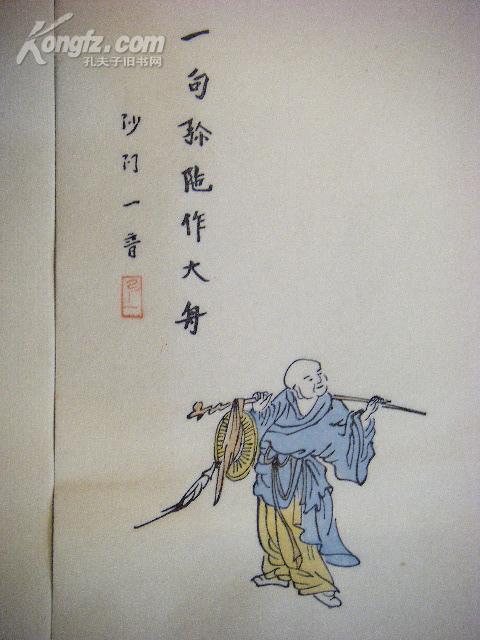 Kongfz.com
孔夫子旧书网
一句弥陁作大舟
沙门一音